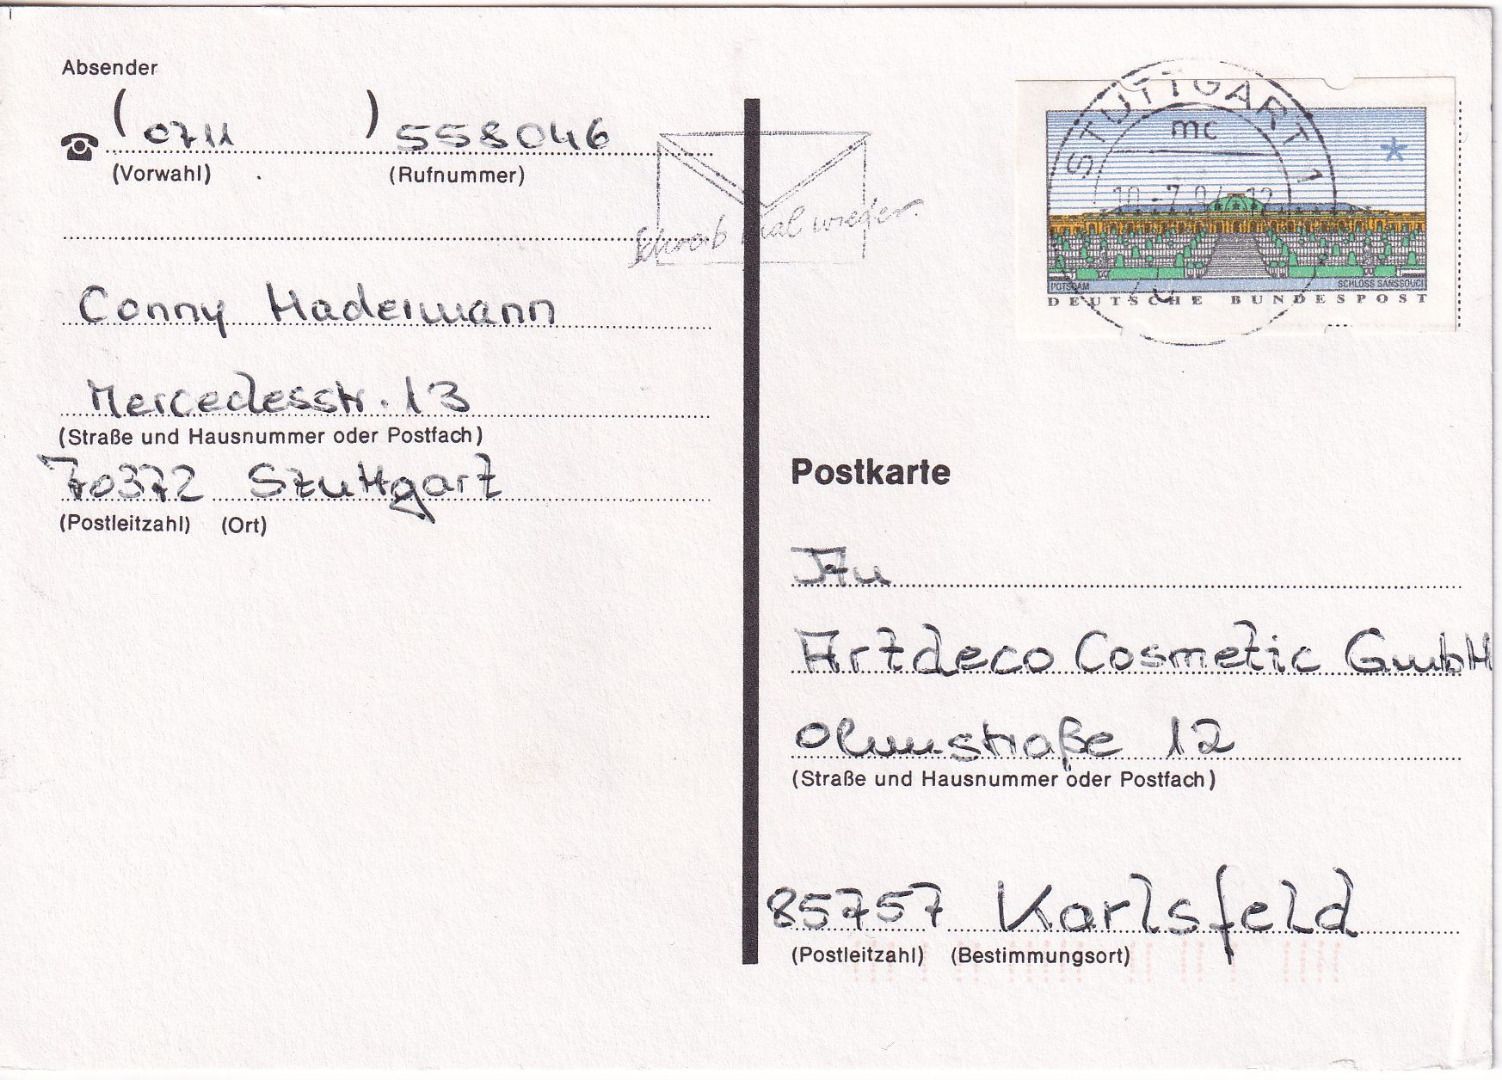 Absender
(0711 ) 558046
(Vorwahl) (Rufnummer)
Conny Hadermann
Mercedesstr. 13
(Straße und Hausnummer oder Postfach)
70372 Stuttgart
(Postleitzahl) (Ort)
Schreib mal wieder.
STUTTGART 1
mc
POTSDAM SCHLOSS SANSSOUCI
DEUTSCHE BUNDESPOST
Postkarte
An
Artdeco Cosmetic GmbH
Ohmstraße 12
(Straße und Hausnummer oder Postfach)
85757 Karlsfeld
(Postleitzahl) (Bestimmungsort)